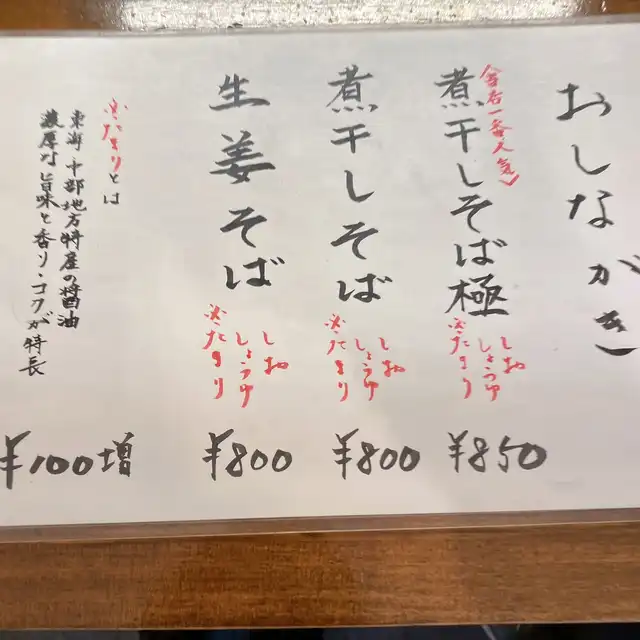 おしながき
(当店一番人気)
煮干しそば極
しお
しょうゆ
※たまり
¥850
煮干しそば
しお
しょうゆ
※たまり
¥800
生姜そば
しお
しょうゆ
※たまり
¥800
※たまりとは
東海中部地方特産の醤油
濃厚な旨味と香り・コクが特長
¥100増